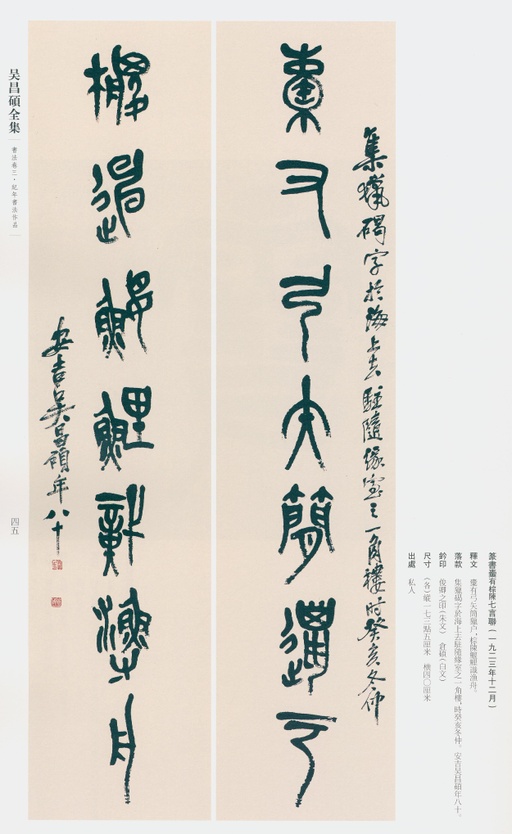 篆書櫜有棕陳七言聯（一九二三年十二月）
釋文 櫜有弓矢簡獵户，棕陳鰋鯉識漁舟。
落款 集獵碣字於海上去駐隨緣室之一角樓，時癸亥冬仲。安吉吴昌碩年八十。
鈐印 俊卿之印（朱文） 倉碩（白文）
尺寸 （各）縱一七三點五厘米 橫四〇厘米
出處 私人
集獵碣字於海上去駐隨緣室之一角樓時癸亥冬仲
櫜又弓矢簡
鰋鯉識漁舟
安吉吴昌碩年八十
吴昌碩全集
書法卷三·紀年書法作品
四五